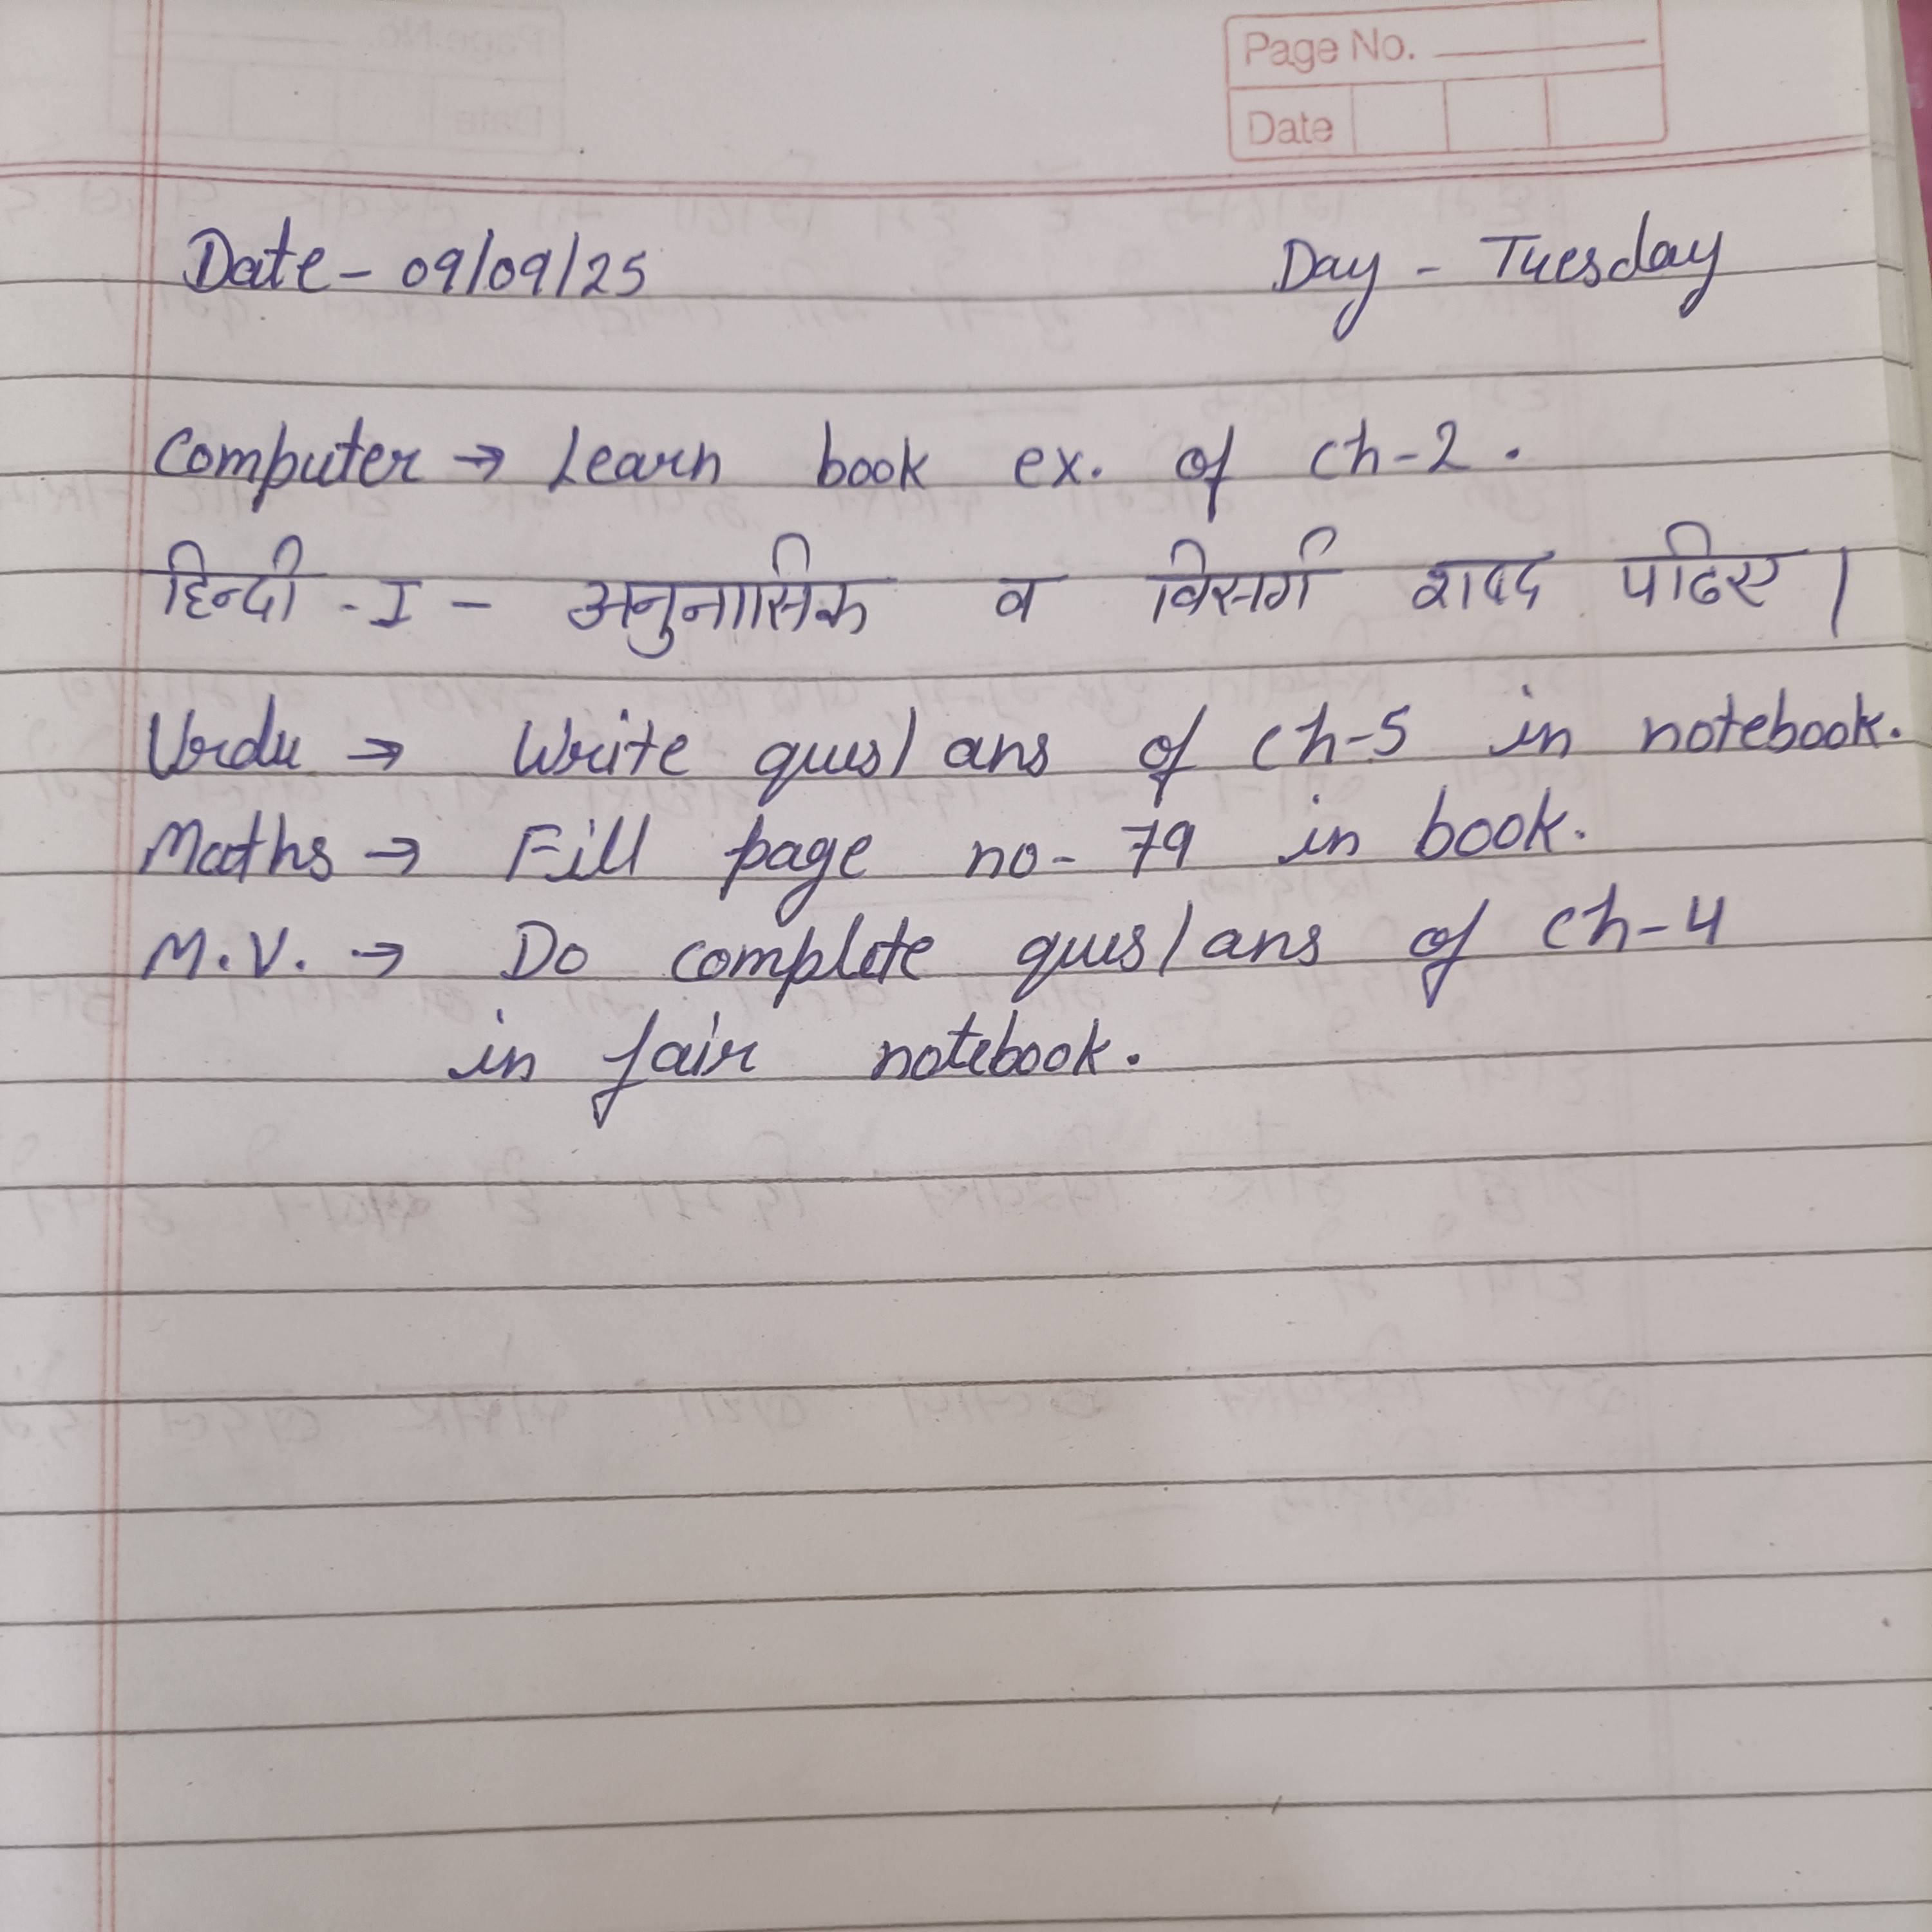 Page No.
Date
Date - 09/09/25 Day - Tuesday
Computer → Learn book ex. of ch-2.
हिन्दी - I - अनुनासिक व विसर्ग शब्द पढिए।
Urdu → Write ques/ans of ch-5 in notebook.
Maths → Fill page no- 79 in book.
M.V. → Do complete ques/ans of ch-4
in fair notebook.